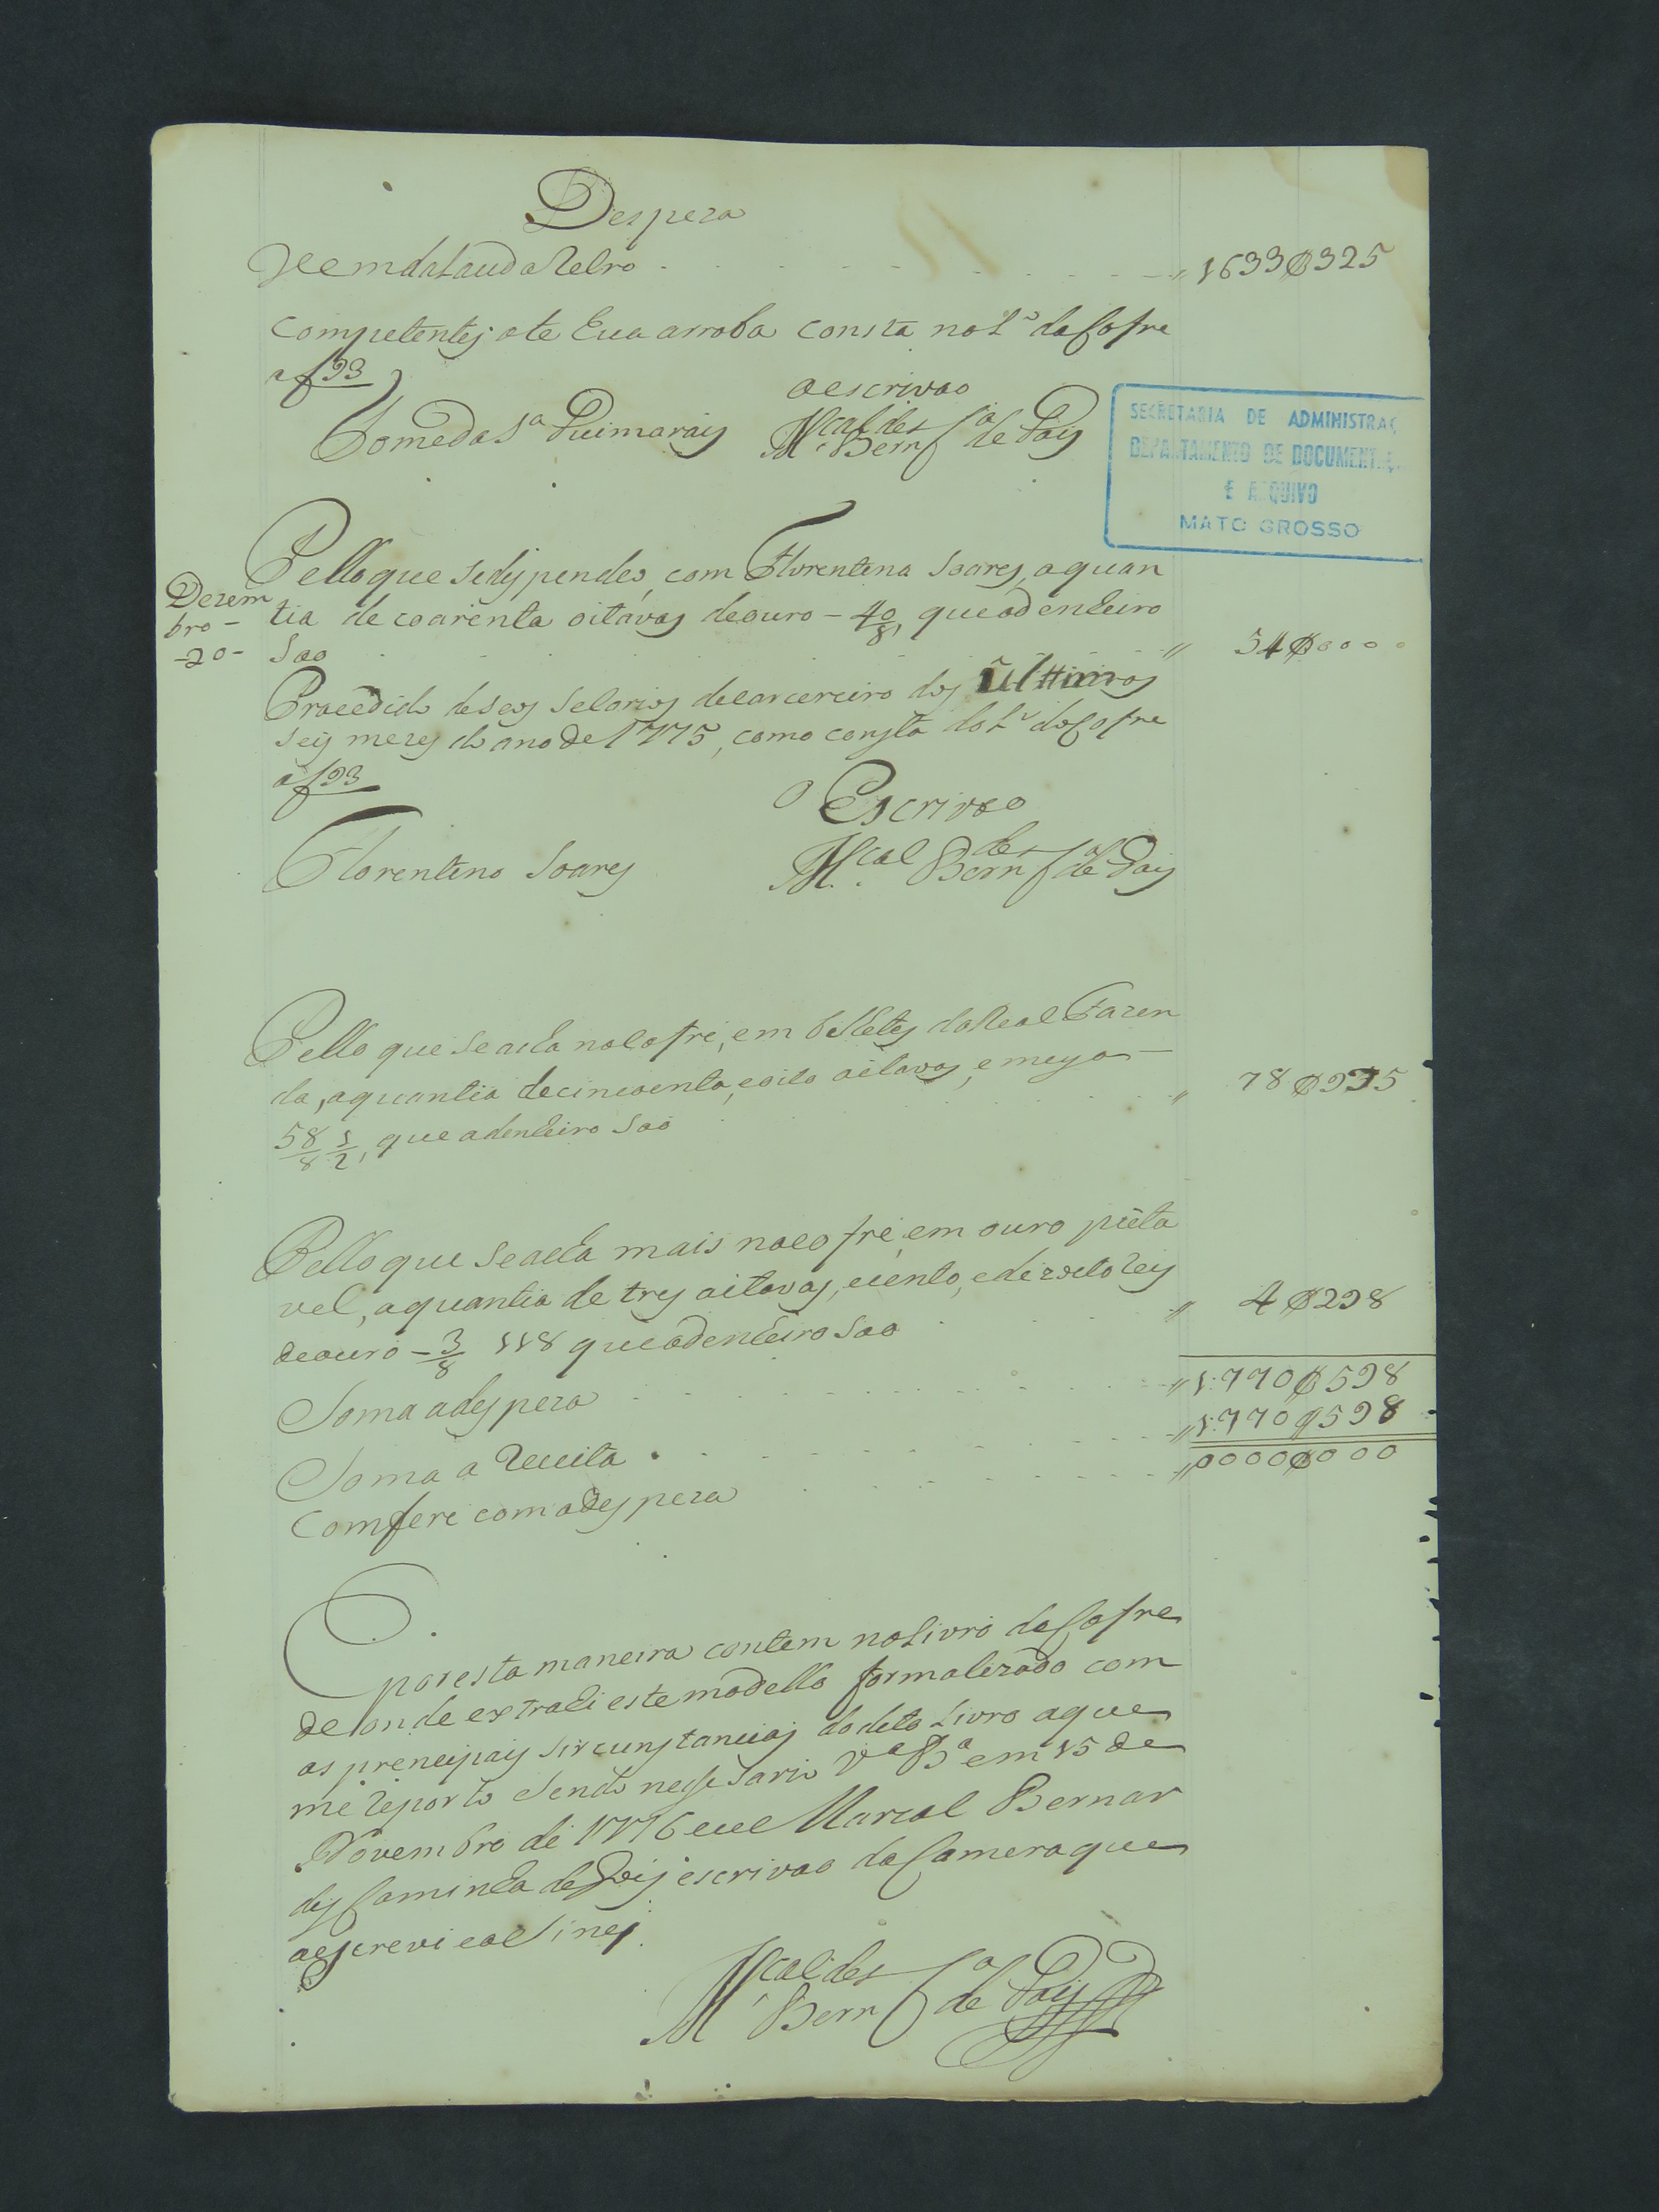 Despeza
Vem da Lauda Retro - - - - - - - - - - " 1633$325
competentes ate hua arroba consta no L.º do Cofre
a f 93
o escrivao
Thome da S.ª Guimarais M.cal Bern.des C.ª de Pais
SECRETARIA DE ADMINISTRAÇ
DEPARTAMENTO DE DOCUMENT
E ARQUIVO
MATO GROSSO
Pello que se dispendeo, com Florentino Soares, a quan
Dezem
bro -
-20-
tia de coarenta oitavas de ouro - 40/8, que a denheiro
Sao - - - - " 54$000
Procedido de seos selarios de carcereiro dos Ulttimos
seis mezes do ano de 1775, como consta do L.º do Cofre
a f 93
O Escrivao
Florentino Soares M.cal Bern.des C.ª de Pais
Pello que se acha no Cofre, em bilhetes da Real Fazen
da, a quantia de cincoenta, e oito oitavas, e meya -
58/8 1/2, que a denheiro Sao " 78$975
Pello que se acha mais no Cofre, em ouro
vel, a quantia de tres oitavas, cento, e dezoito reis
de ouro - 3/8 118 que a denheiro Sao " 4$298
Soma a despeza - - - - " 1:770$598
Soma a Receita - - - - " 1:770$598
Comfere com a despeza - - - - " 0000$000
E por esta maneira contem no Livro do Cofre
de onde extrahi este modello formalizado com
as prencipais sircunstancias do dito Livro a que
me reporto sendo nesesario V.ª B.ª em 15 de
Novembro de 1776 e eu Marcal Bernar
des Caminha de Pais escrivao da Camera que
o escrevi e asinej.
M.cal Bern.des C.ª de Pais